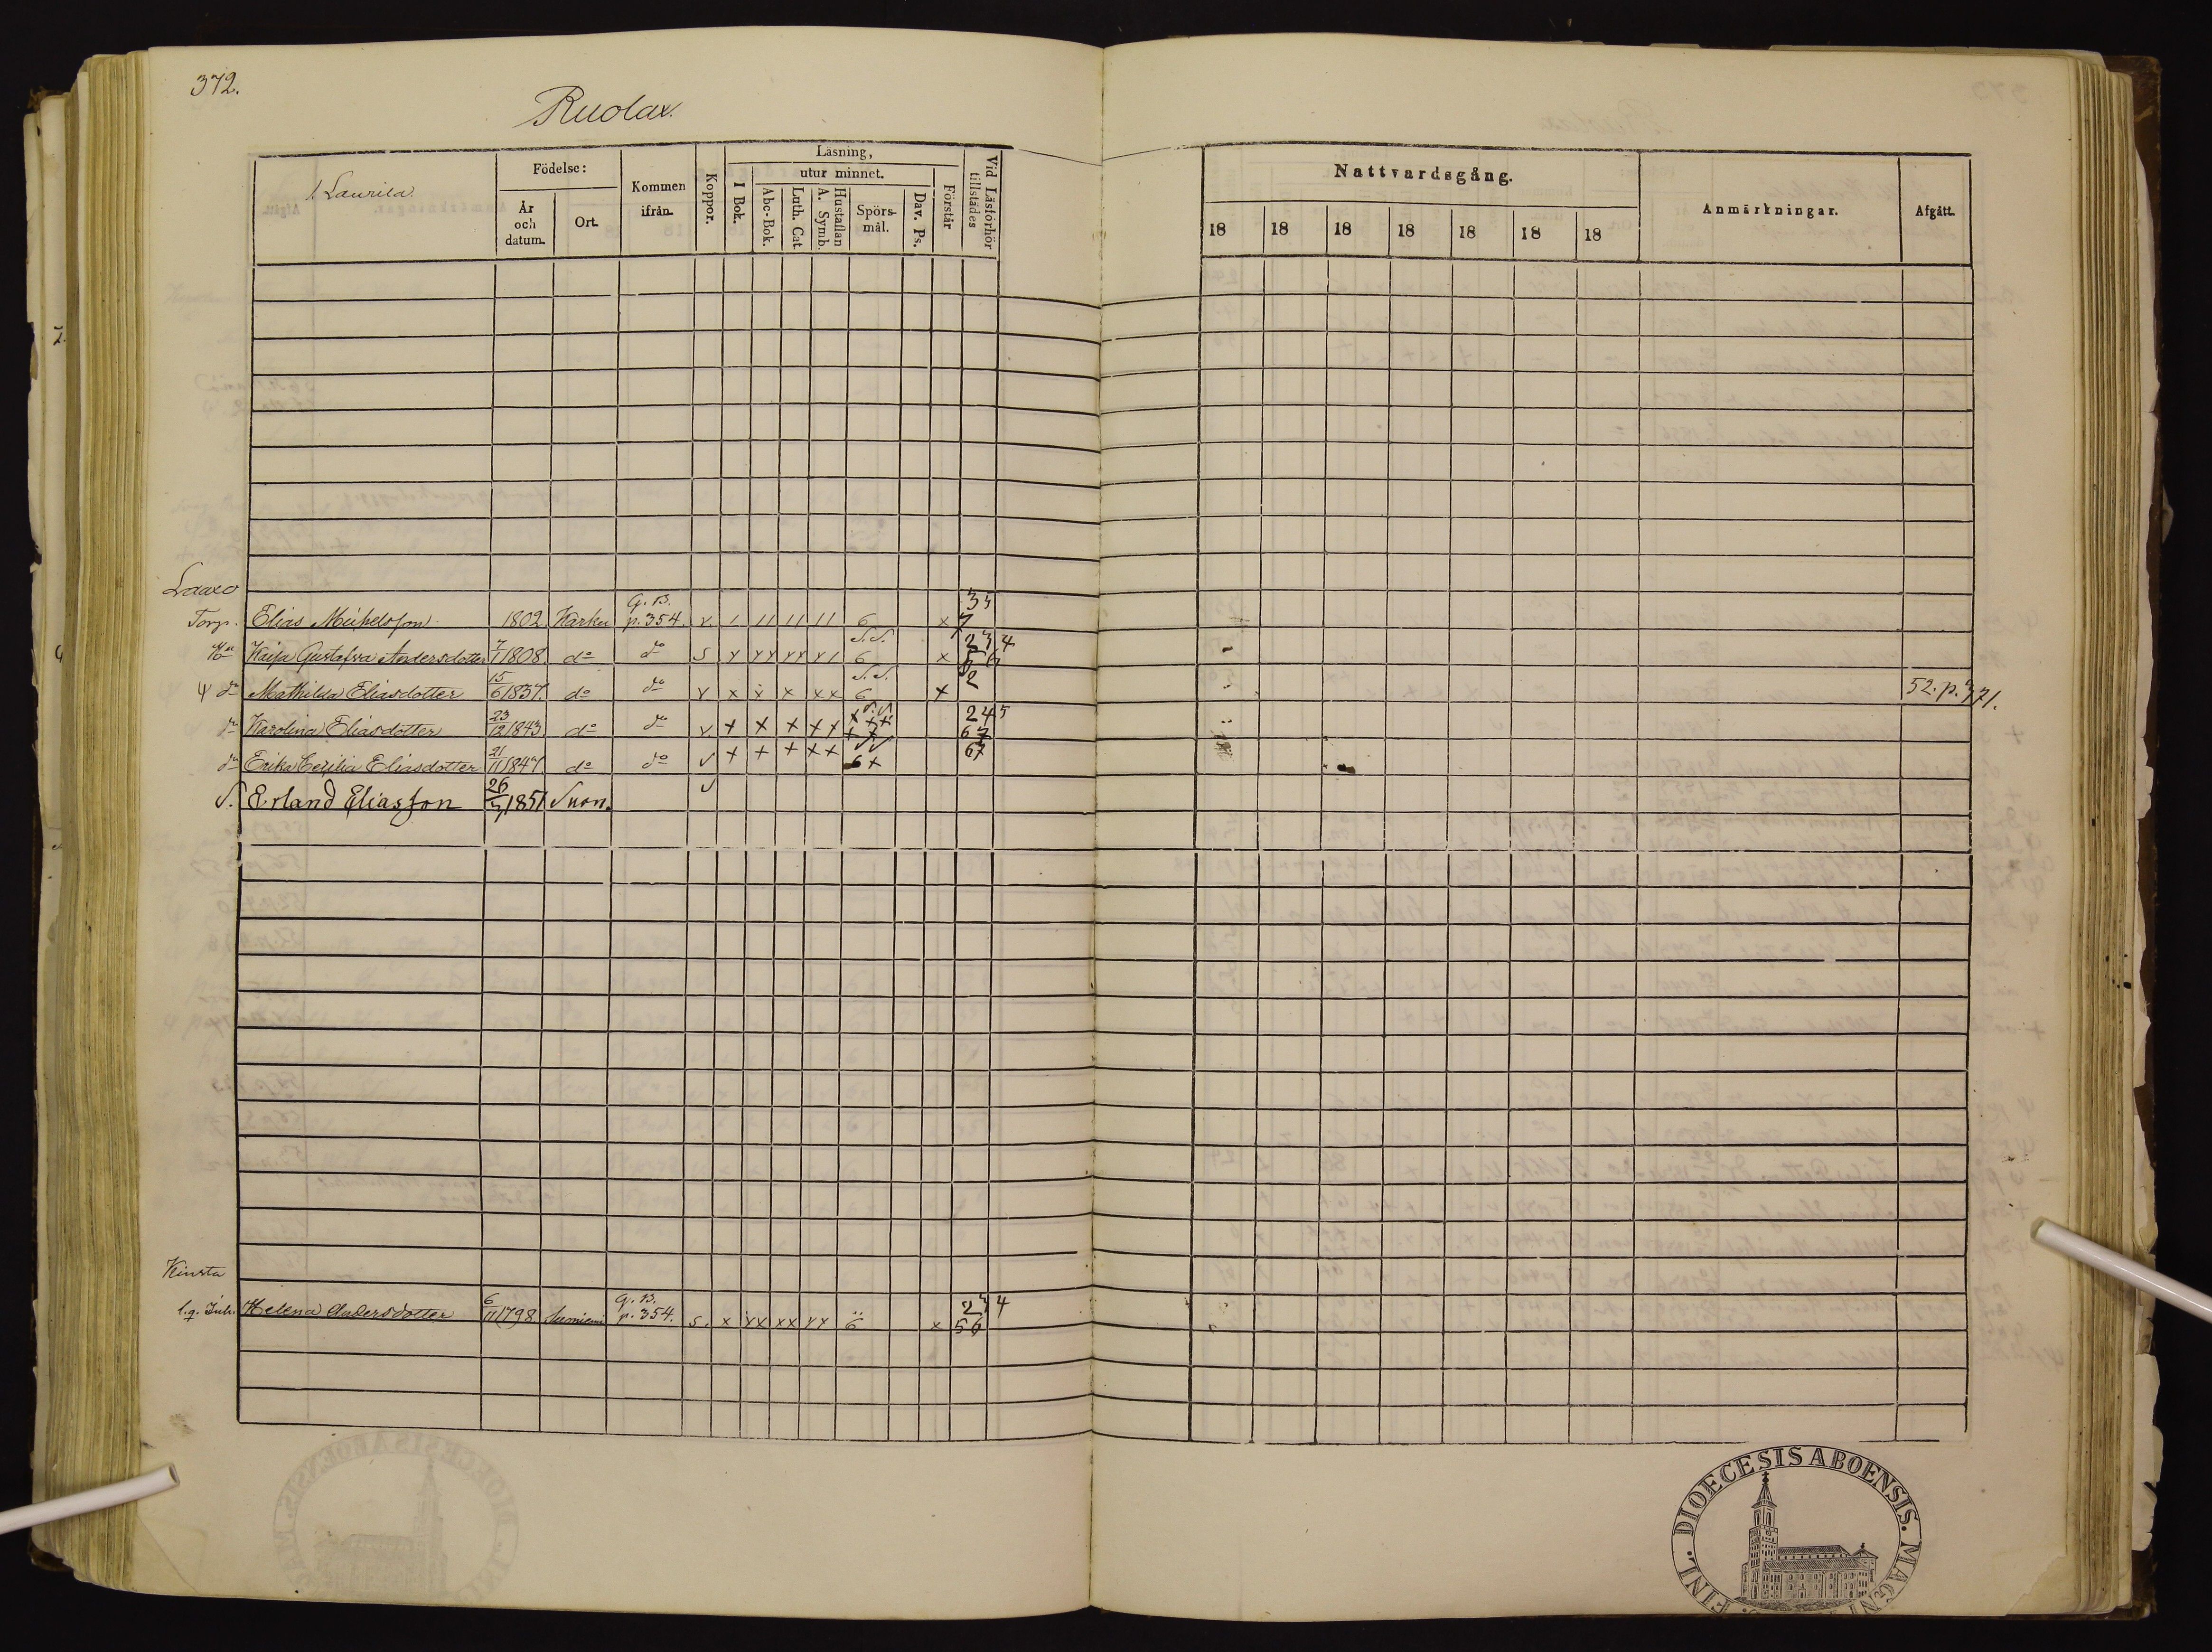 372.
Ruolax.
1 Laurila.
Födelse:
År och datum.
Ort.
Kommen ifrån
Koppor.
Läsning,
I Bok.
utur minnet.
Abc-Bok.
Luth. Cat
Hustaflan A. Symb.
Spörs-mål.
Dav. Ps.
Förstår
Vid Läsförhör tillstädes
Nattvardsgång.
18 18 18 18 18 18 18
Anmärkningar.
Afgått.
Torp. Elias Michelsson 1802 Karku G. B. p. 354. 6 x
Kaisa Gustafva Andersdotter 1808. do do 6 x 2 3 4 5 6
do Mathilda Eliasdotter 15/6 1837. do do x x x xx 6 x 2 52. p. 371.
do Karolina Eliasdotter 23/12 1843 do do x x x 2 4 5 6 7
do Erika Cecilia Eliasdotter 21/11 1847. do do x x x xx 6 x 6 7
S. Erland Eliasson 1851 Suon.
Kinsta
Inh. Helena Andersdotter 6/11 1798. G. B. p. 354. S. x xx xx 6 x 2 3 4 5 6
DIOECESIS ABOENSIS. MAGNI
FINL.